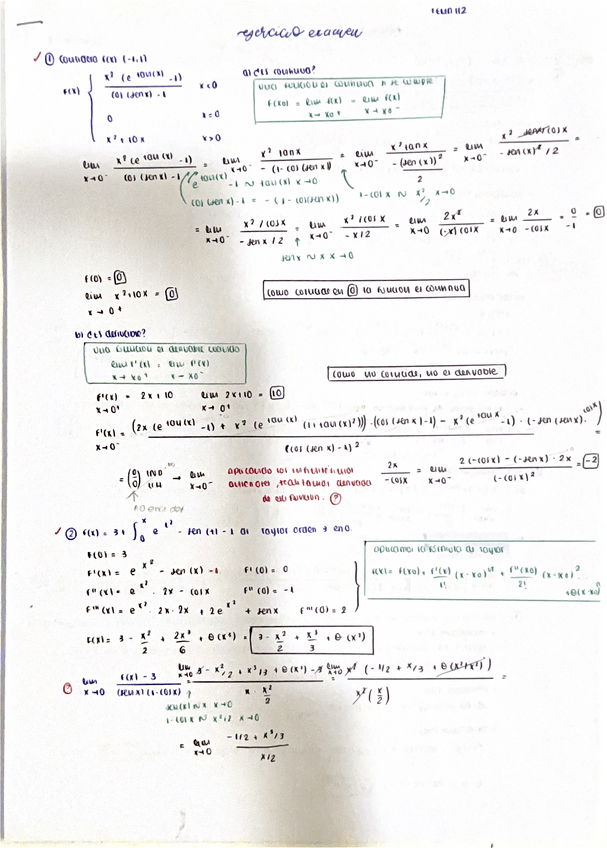 ejercicio examen
① Continua f(x) (-1,1)
f(x) { x² (e^tan(x) -1) / cos (senx) -1 x<0
0 x=0
x² + 10x x>0
a) ¿Es continua?
una función es continua si se cumple
f(x0) = lim x→x0+ f(x) = lim x→x0- f(x)
lim x→0- x² (e^tan(x) -1) / cos (senx) -1 = lim x→0- x² tanx / -(1-cos(senx)) = lim x→0- x² tanx / -(senx)²/2 = lim x→0- x² senx/cosx / -sen(x)²/2 =
e^tan(x) -1 ~ tan(x) x→0
cos(senx)-1 = -(1-cos(senx))
1-cosx ~ x²/2 x→0
= lim x→0- x²/cosx / -senx/2 = lim x→0- x²/cosx / -x/2 = lim x→0 2x² / (-x)cosx = lim x→0 2x / -cosx = 0/-1 = 0
senx ~ x x→0
f(0) = 0
lim x→0+ x²+10x = 0
como coincide en 0 la función es continua
b) ¿Es derivable?
una función es derivable cuando
lim x→x0+ f'(x) = lim x→x0- f'(x)
como no coincide, no es derivable
f'(x) x→0+ = 2x + 10 lim x→0+ 2x+10 = 10
f'(x) x→0- = (2x (e^tan(x) -1) + x² (e^tan(x) (1+tan(x)²))) · (cos(senx)-1) - x² (e^tanx -1) · (-sen(senx) · cosx) / (cos(senx)-x)²
= (0/0) IND → lim x→0-
aplicando los infinitésimos anteriores, realizamos derivada de esa función. ?
2x / -cosx = lim x→0- 2(-cosx) - (-senx) · 2x / (-cosx)² = -2
② f(x) = 3 + ∫₀ˣ e^t² - sen(t) -1 dt Taylor orden 3 en 0.
f(0) = 3
f'(x) = e^x² - sen(x) -1 f'(0) = 0
f''(x) = e^x² · 2x - cosx f''(0) = -1
f'''(x) = e^x² · 2x · 2x + 2e^x² + senx f'''(0) = 2
aplicamos la fórmula de Taylor
f(x) = f(x0) + f'(x)/1! (x-x0)¹ + f''(x0)/2! (x-x0)²
+θ(x-x0)
f(x) = 3 - x²/2 + 2x³/6 + θ(x³) = 3 - x²/2 + x³/3 + θ(x³)
? lim x→0 f(x)-3 / (senx)(1-cosx) = lim x→0 3 - x²/2 + x³/3 + θ(x³) - 3 / x · x²/2 = lim x→0 x² (-1/2 + x/3 + θ(x²+x²)) / x²(x/2) =
sen(x) ~ x x→0
1-cosx ~ x²/2 x→0
= lim x→0 -1/2 + x³/3 / x/2